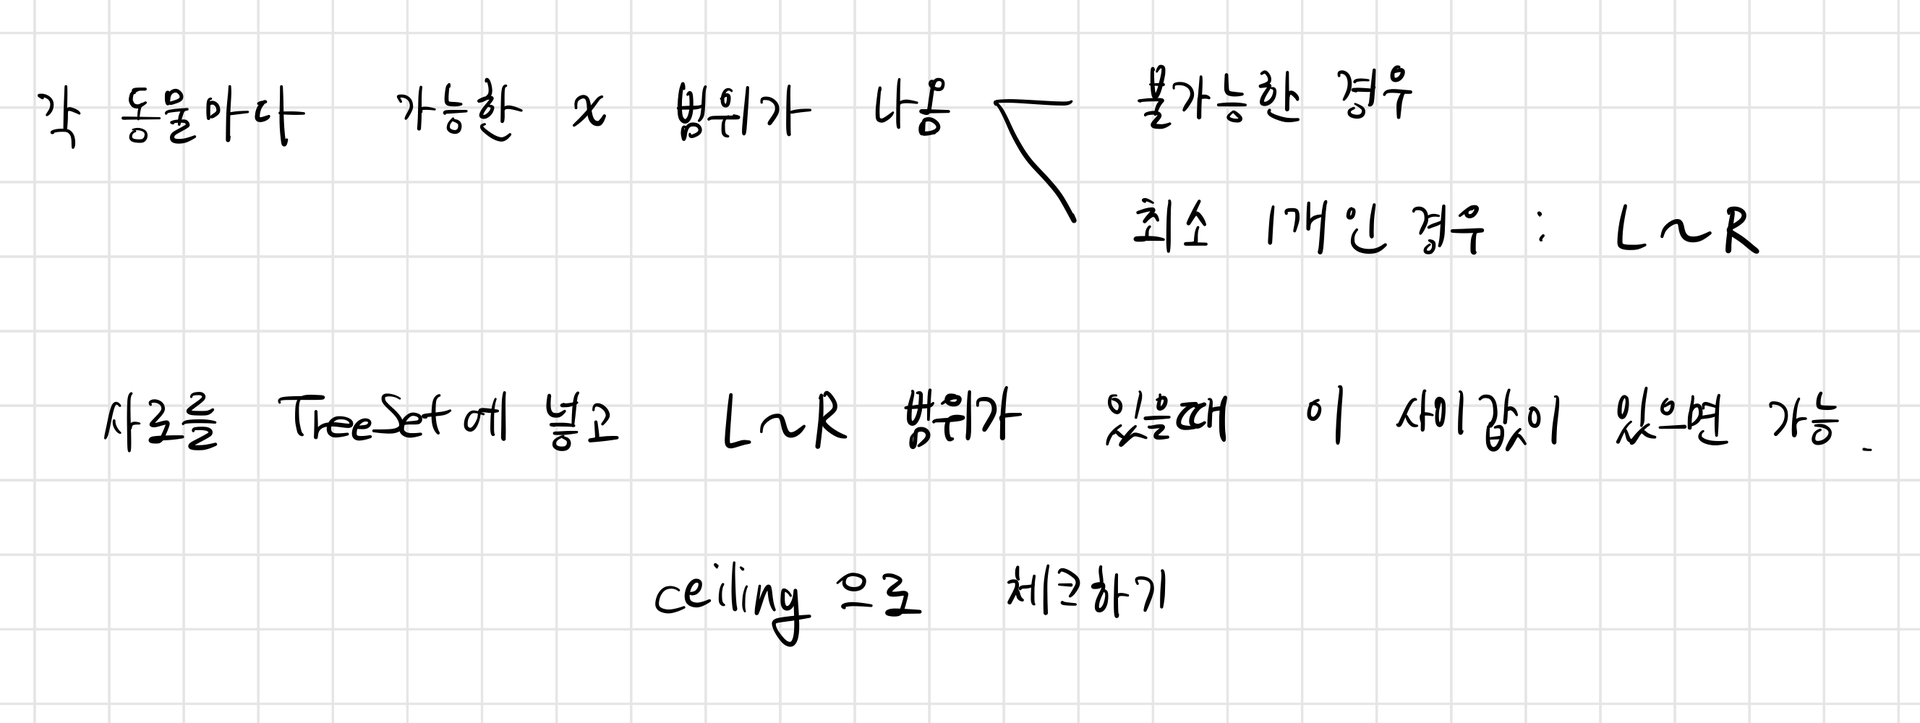 각 동물마다 가능한 x 범위가 나옴 불가능한 경우
최소 1개인 경우 : L~R
사로를 TreeSet에 넣고 L~R 범위가 있을때 이 사이값이 있으면 가능.
ceiling으로 체크하기